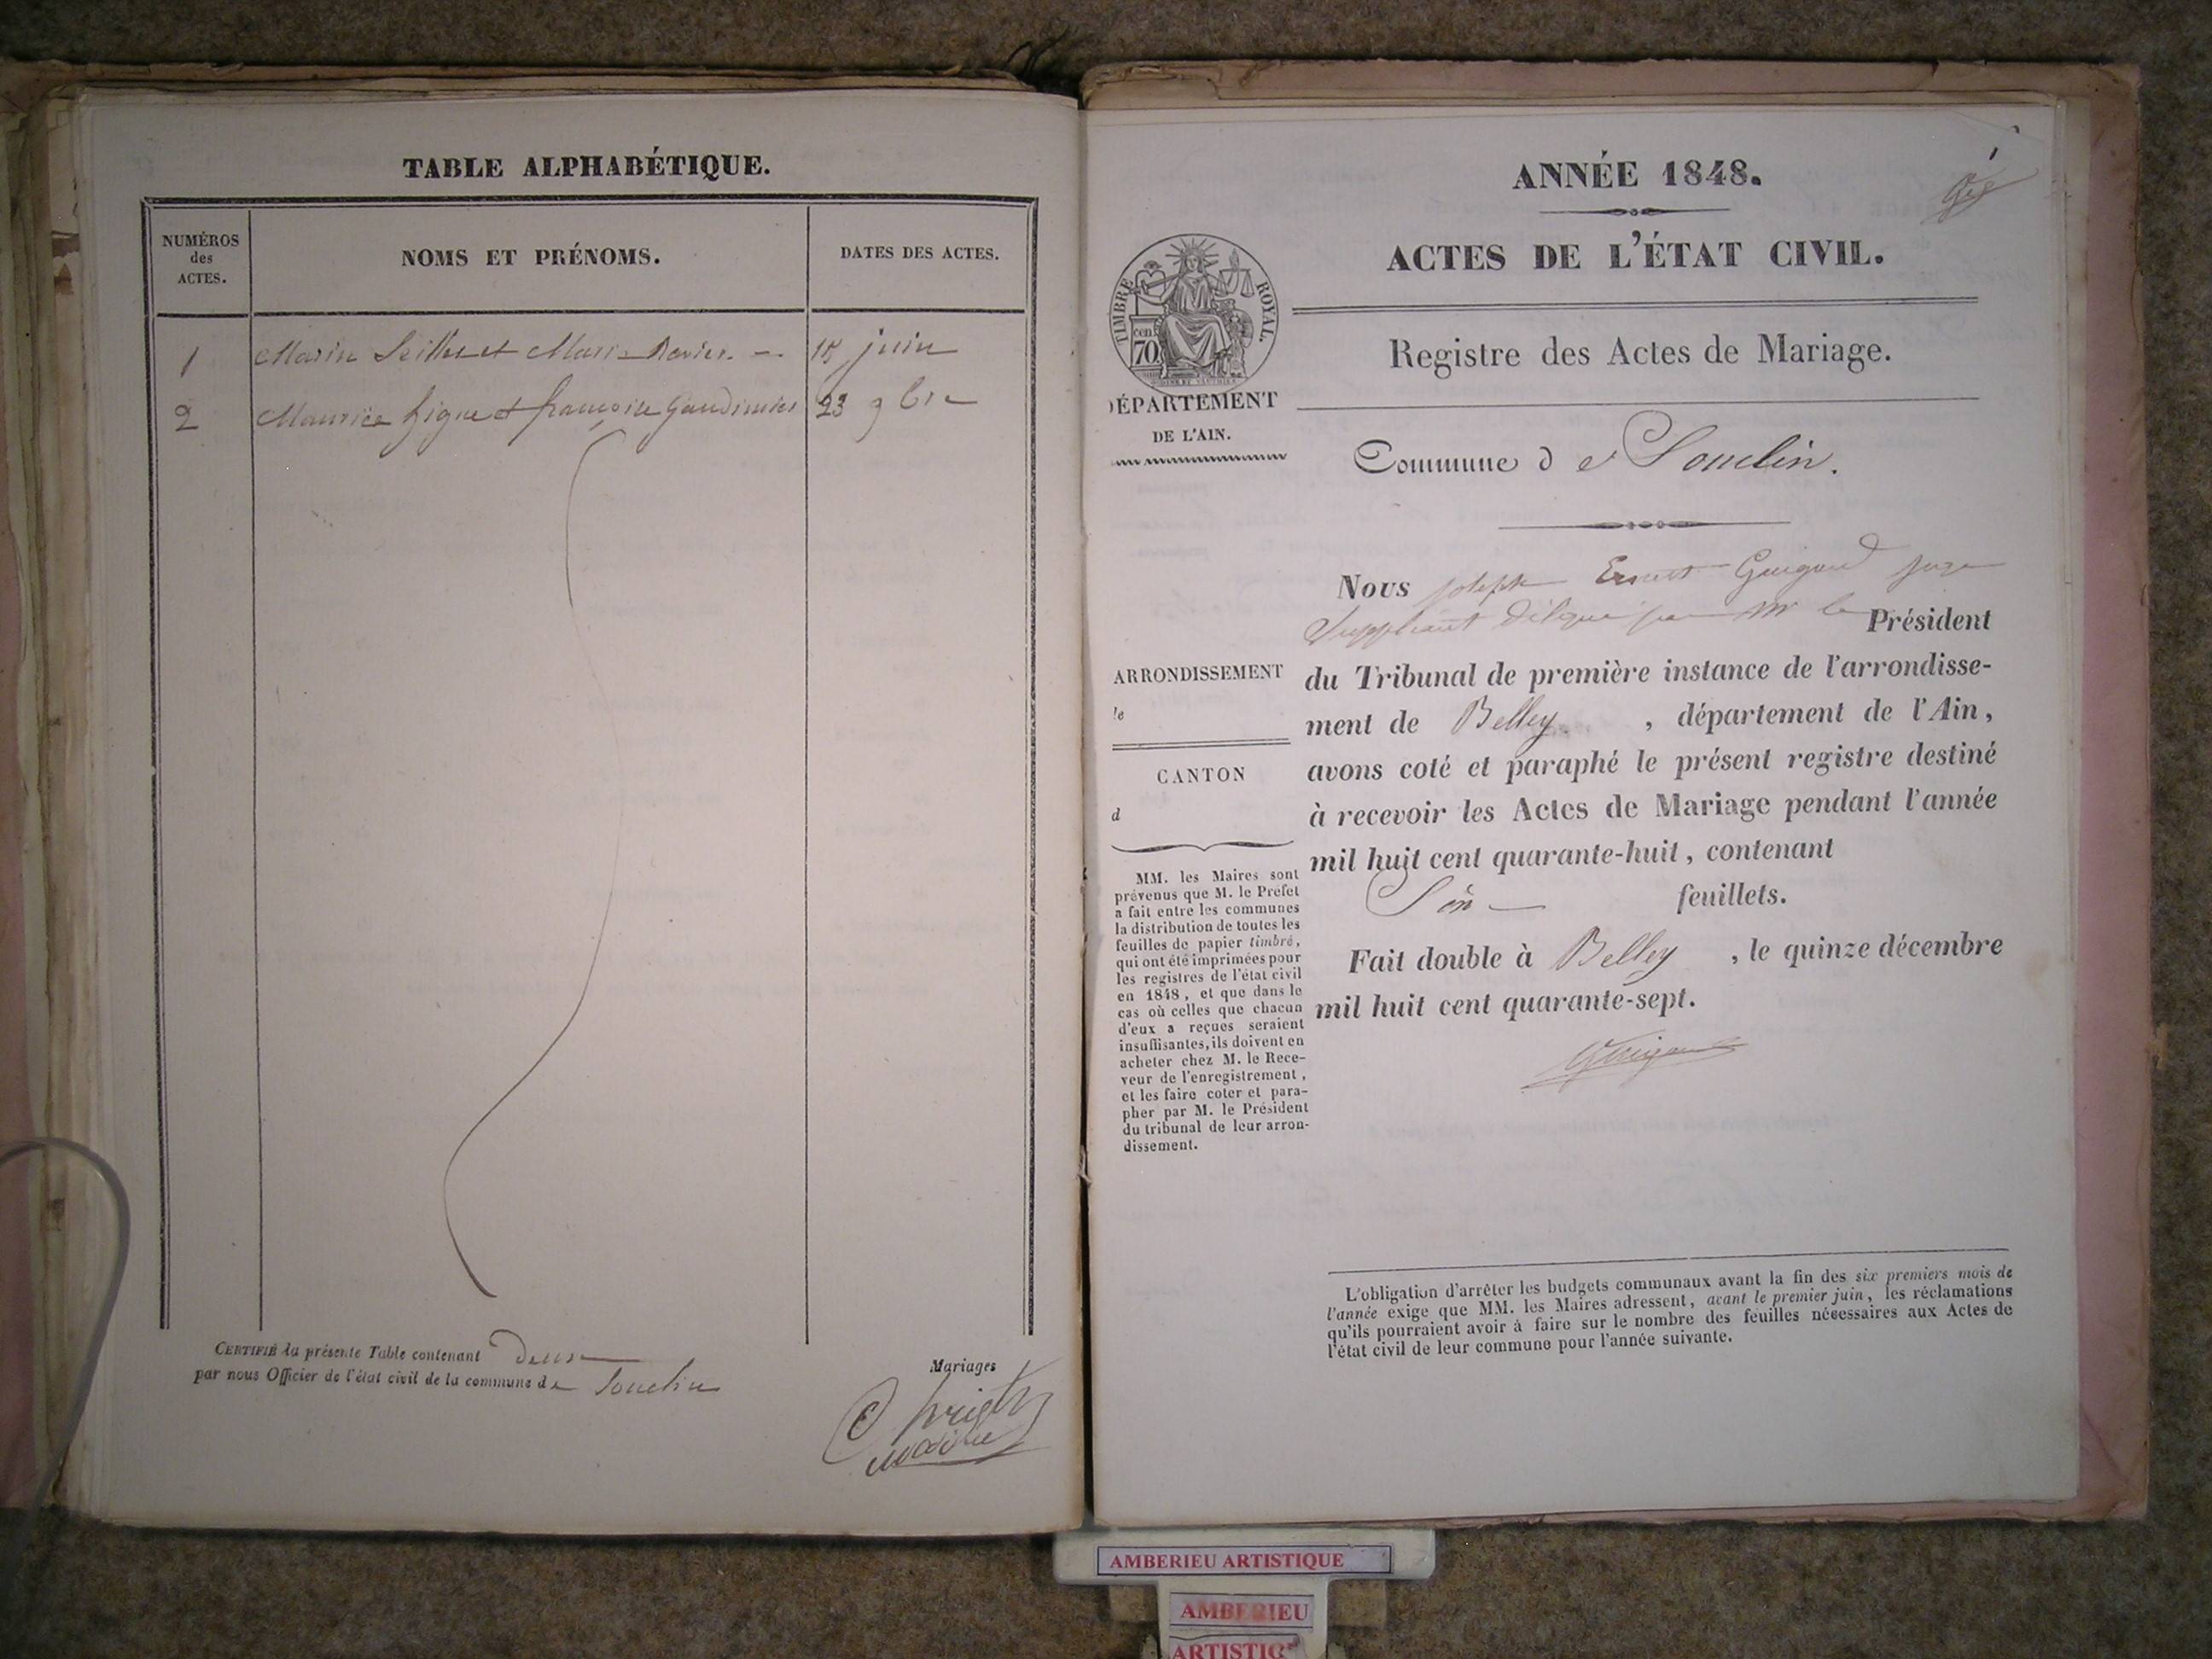 TABLE ALPHABÉTIQUE.
NUMÉROS
des
ACTES.
NOMS ET PRÉNOMS.
DATES DES ACTES.
1 Marin Seilles et Marie Ravier. 15 juin
2 Maurice et françoise 23 9bre
CERTIFIÉ la présente Table contenant deux Mariages
par nous Officier de l'état civil de la commune de Souclin
maire
ANNÉE 1848.
1
ACTES DE L'ÉTAT CIVIL.
TIMBRE ROYAL.
cen.
70
Registre des Actes de Mariage.
DÉPARTEMENT
DE L'AIN.
Commune de Souclin.
Nous joseph Ernest Guigard juge
Suppléant délégué par Mr le Président
du Tribunal de première instance de l'arrondisse-
ment de Belley , département de l'Ain,
avons coté et paraphé le présent registre destiné
à recevoir les Actes de Mariage pendant l'année
mil huit cent quarante-huit, contenant
feuillets.
Fait double à Belley , le quinze décembre
mil huit cent quarante-sept.
ARRONDISSEMENT
CANTON
d
MM. les Maires sont
prévenus que M. le Préfet
a fait entre les communes
la distribution de toutes les
feuilles de papier timbré,
qui ont été imprimées pour
les registres de l'état civil
en 1848, et que dans le
cas où celles que chacun
d'eux a reçues seraient
insuffisantes, ils doivent en
acheter chez M. le Rece-
veur de l'enregistrement,
et les faire coter et para-
pher par M. le Président
du tribunal de leur arron-
dissement.
L'obligation d'arrêter les budgets communaux avant la fin des six premiers mois de
l'année exige que MM. les Maires adressent, avant le premier juin, les réclamations
qu'ils pourraient avoir à faire sur le nombre des feuilles nécessaires aux Actes de
l'état civil de leur commune pour l'année suivante.
AMBERIEU ARTISTIQUE
AMBERIEU